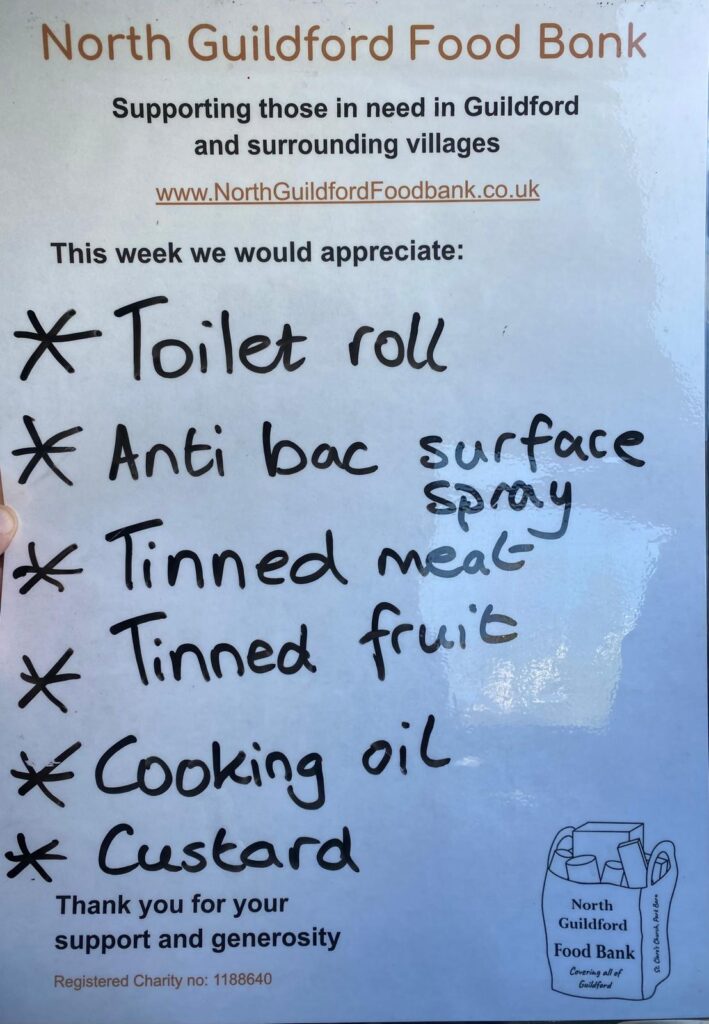 North Guildford Food Bank
Supporting those in need in Guildford
and surrounding villages
www.NorthGuildfordFoodbank.co.uk
This week we would appreciate:
* Toilet roll
* Anti bac surface
spray
* Tinned meat
* Tinned fruit
* Cooking oil
* Custard
Thank you for your
support and generosity
Registered Charity no: 1188640
North
Guildford
Food Bank
Covering all of
Guildford
St Clare's Church, Park Barn